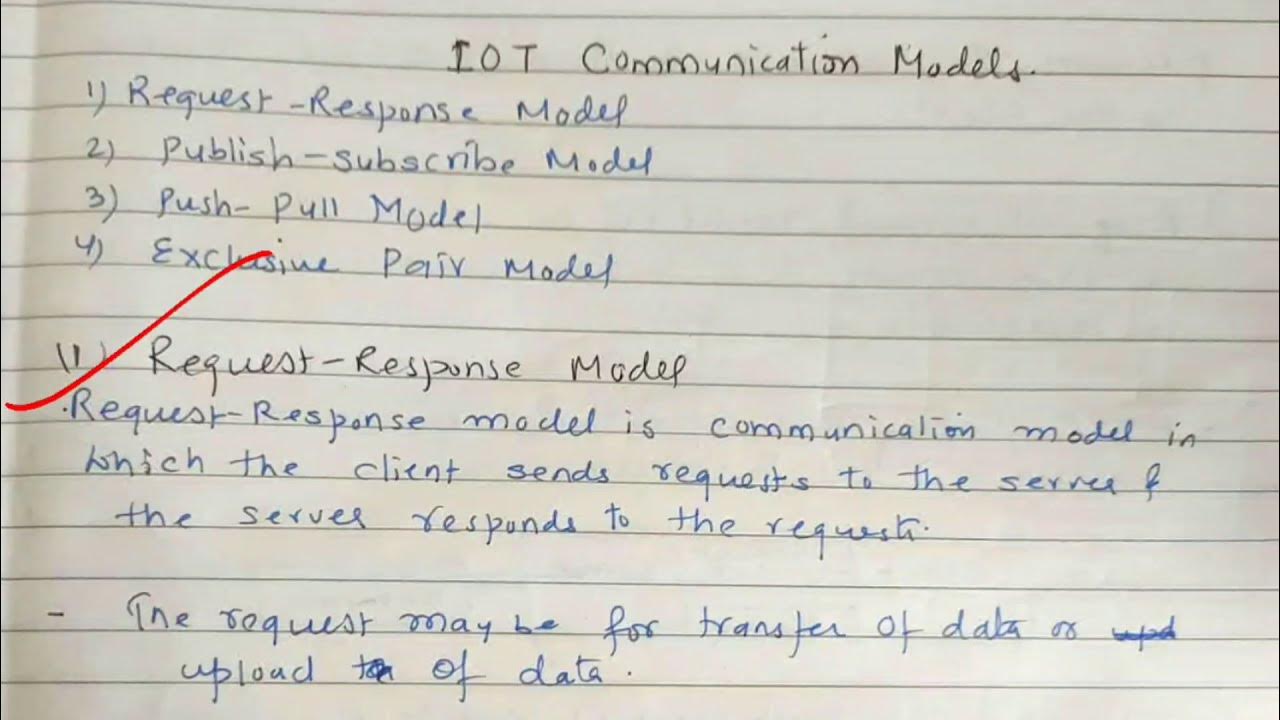 IOT Communication Models.
1) Request-Response Model
2) Publish-subscribe Model
3) Push-Pull Model
4) Exclusive Pair Model
(1) Request-Response Model
.Request-Response model is communication model in
which the client sends requests to the server &
the server responds to the request.
- The request may be for transfer of data or upd
upload to of data.